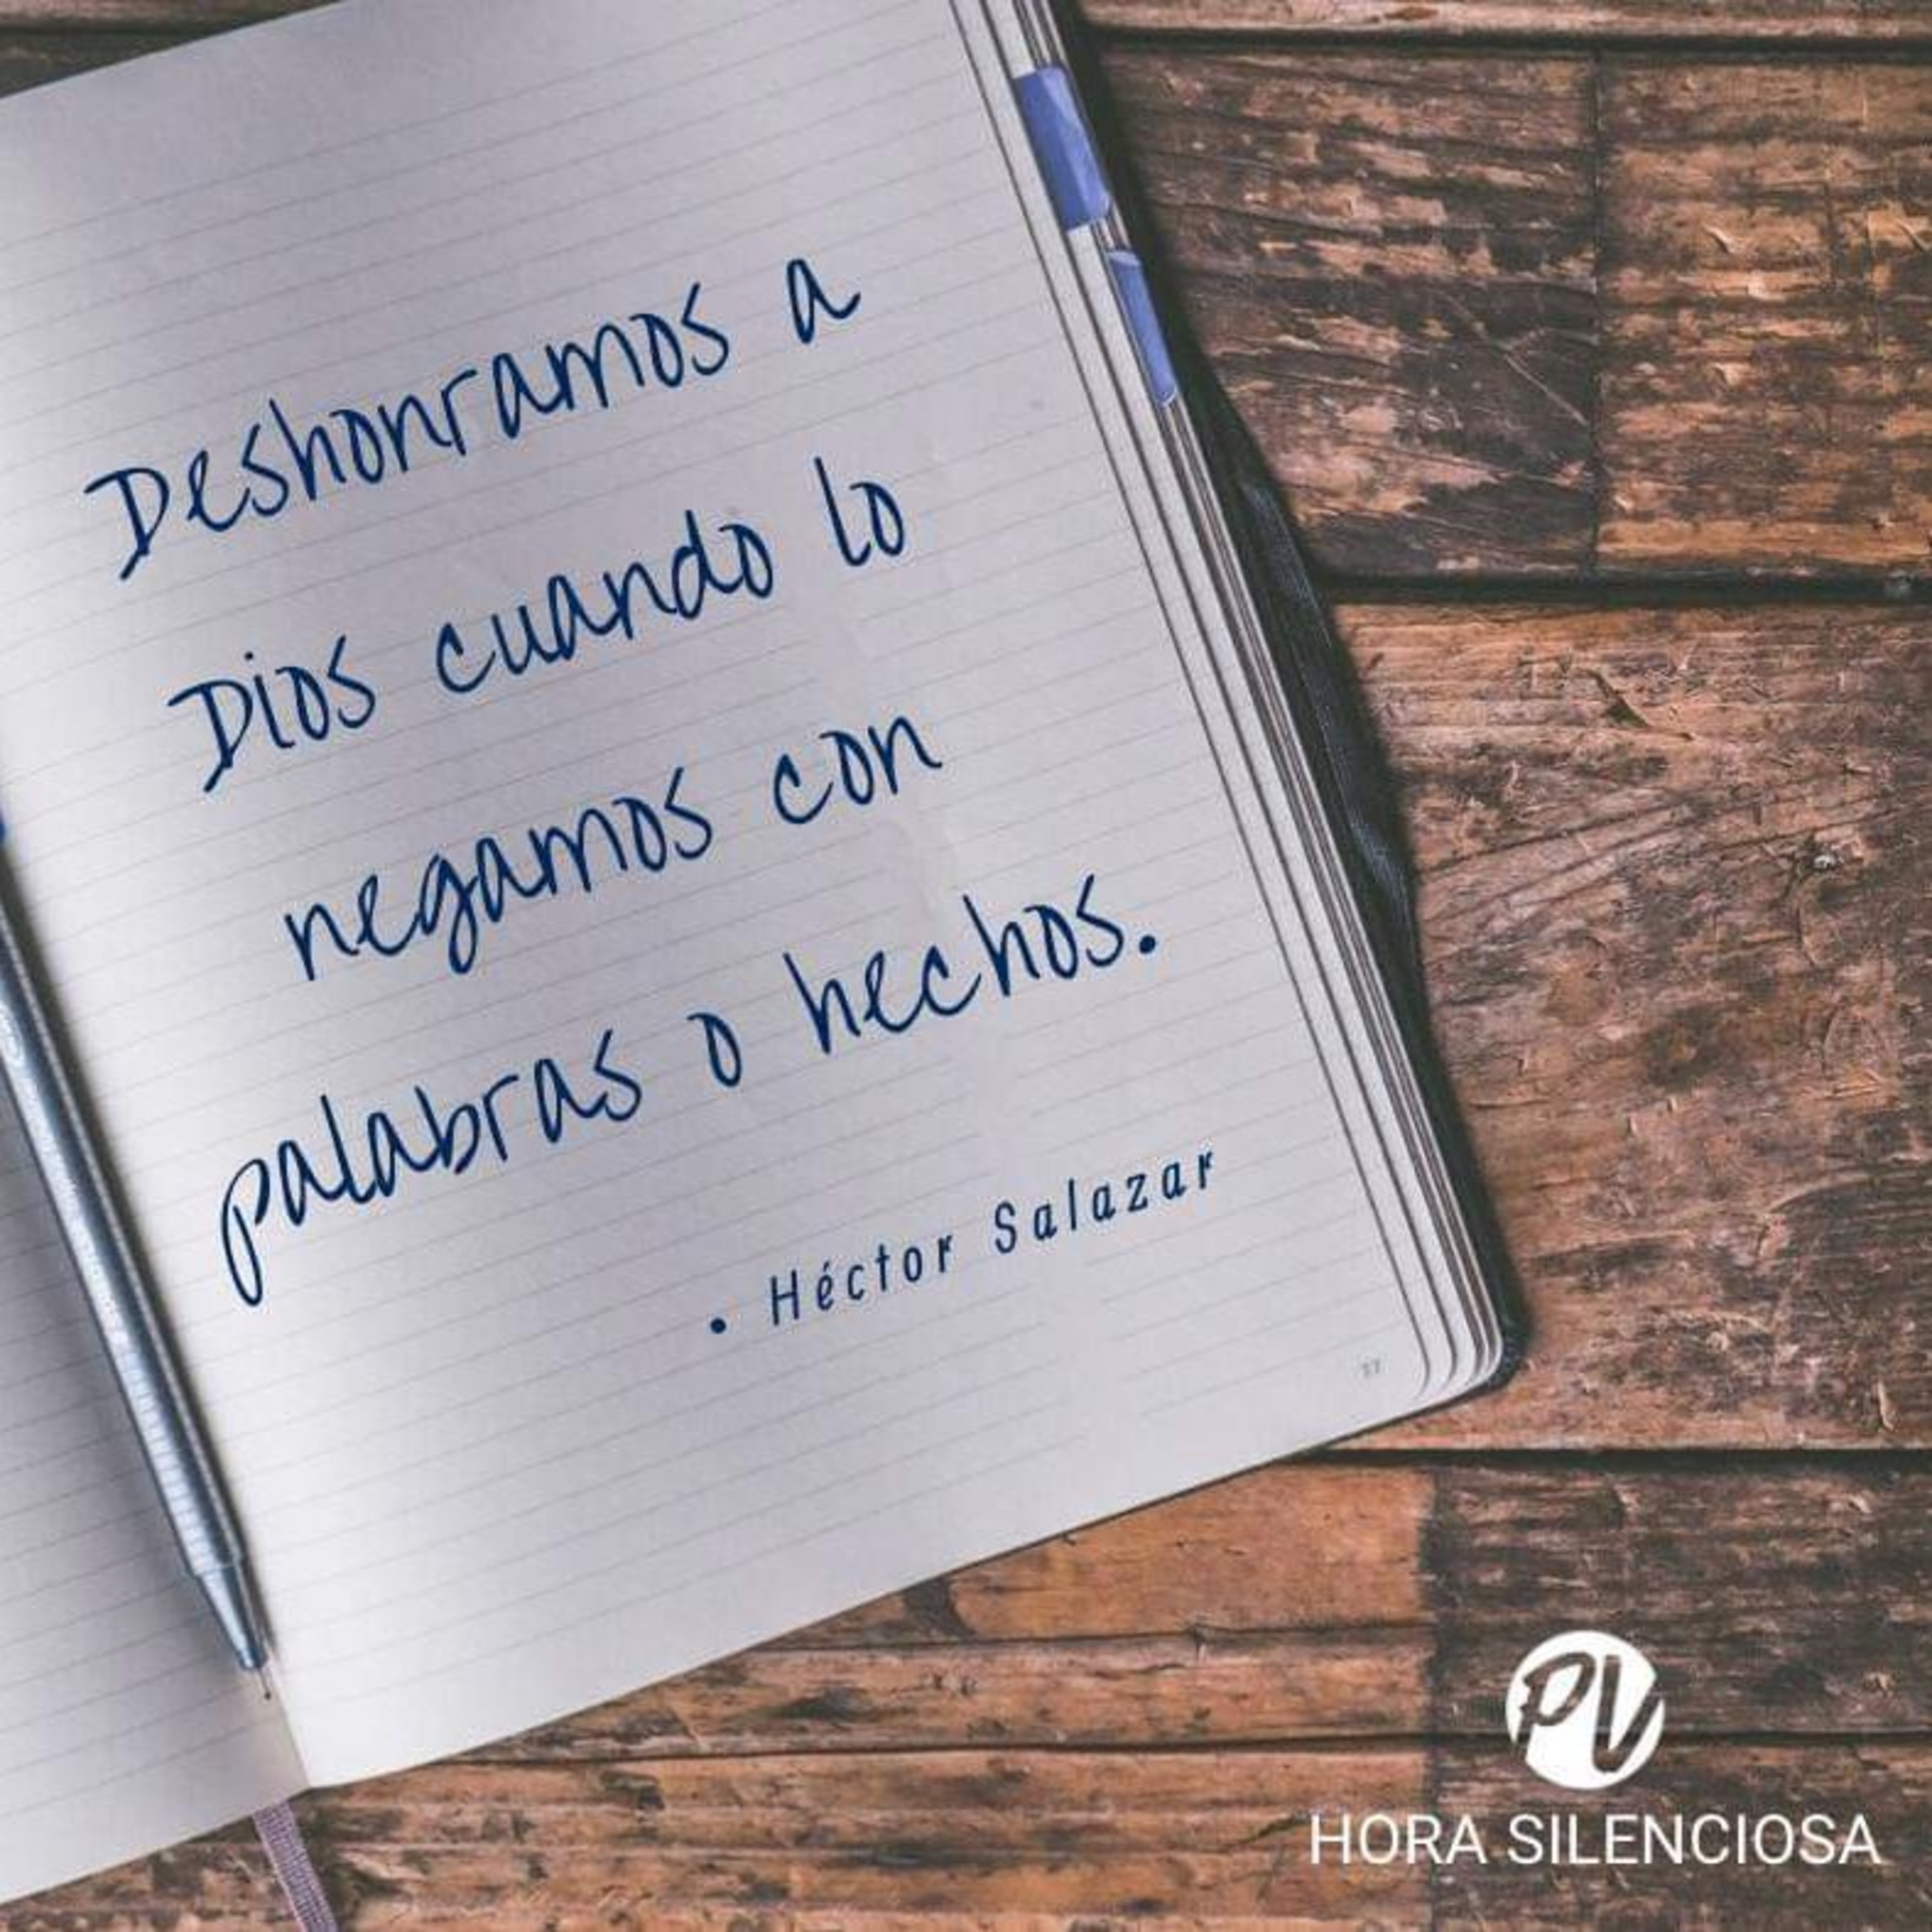 Deshonramos a
Dios cuando lo
negamos con
palabras o hechos.
• Héctor Salazar
PV
HORA SILENCIOSA